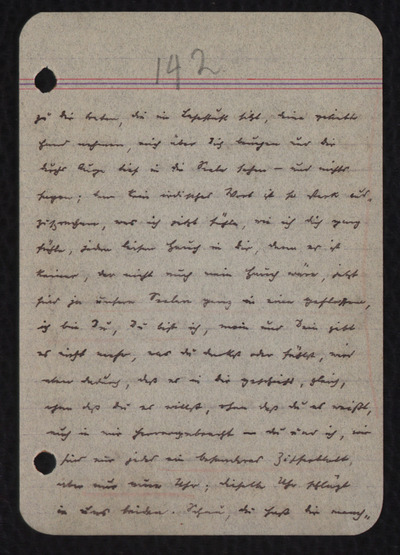 142
zu dir treten, die im Lehnstuhl sitzt, deine geliebte
Hand nehmen, mich über Dich beugen und dir
durchs Auge tief in die Seele sehen – und nichts
sagen; denn kein irdisches Wort ist so stark aus-
zusprechen, was ich jetzt fühle, wie ich dich ganz
fühle, jeden leisen Hauch in dir, denn es ist
keiner, der nicht auch mein Hauch wäre, jetzt
sind ja unsere Seelen ganz in eine geflossen,
ich bin Du, Du bist ich, mein und Dein gibt
es nicht mehr, was du denkst oder fühlst, wird
eben dadurch, daß es in dir geschieht, gleich,
ohne daß du es willst, ohne daß du es weißt,
auch in mir hervorgebracht – du und ich, wir
sind nur jedes ein besonderes Zifferblatt,
aber nur eine Uhr; dieselbe Uhr schlägt
in uns beiden. Schau, du hast dir manch-